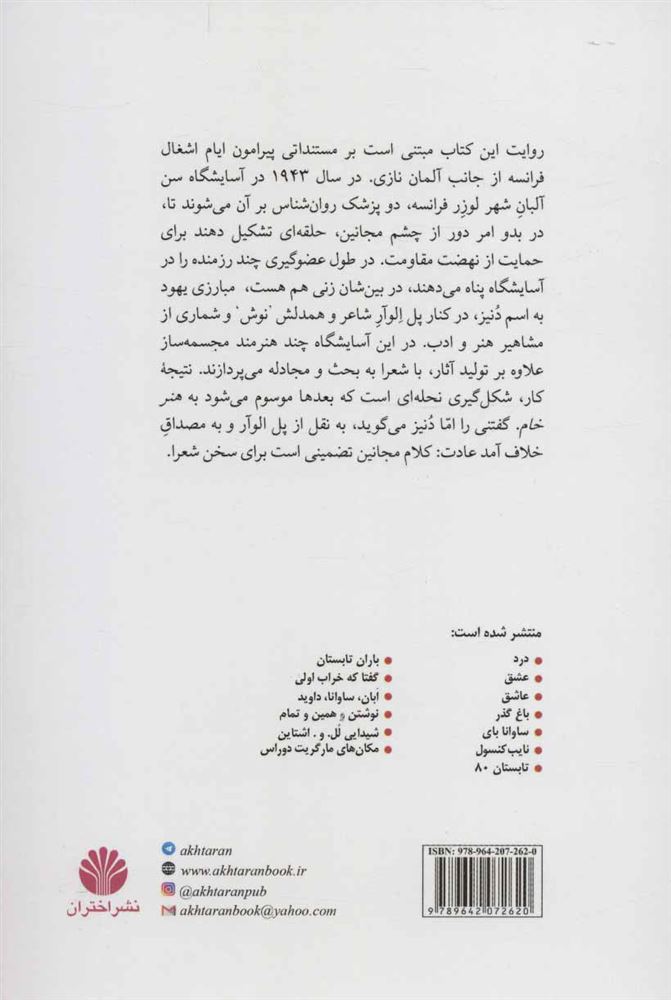 روایت این کتاب مبتنی است بر مستنداتی پیرامون ایام اشغال
فرانسه از جانب آلمان نازی. در سال ۱۹۴۳ در آسایشگاه سن
آلبانِ شهر لوزِر فرانسه، دو پزشک روان‌شناس بر آن می‌شوند تا،
در بدو امر دور از چشم مجانین، حلقه‌ای تشکیل دهند برای
حمایت از نهضت مقاومت. در طول عضوگیری چند رزمنده را در
آسایشگاه پناه می‌دهند، در بین‌شان زنی هم هست، مبارزی یهود
به اسم دُنیز، در کنار پل اِلوآرِ شاعر و همدلش 'نوش' و شماری از
مشاهیر هنر و ادب. در این آسایشگاه چند هنرمند مجسمه‌ساز
علاوه بر تولید آثار، با شعرا به بحث و مجادله می‌پردازند. نتیجهٔ
کار، شکل‌گیری نحله‌ای است که بعدها موسوم می‌شود به هنر
خام. گفتنی را امّا دُنیز می‌گوید، به نقل از پل الوآر و به مصداقِ
خلاف آمد عادت: کلام مجانین تضمینی است برای سخن شعرا.
منتشر شده است:
درد
عشق
عاشق
باغ گذر
ساوانا بای
نایب‌کنسول
تابستان ۸۰
باران تابستان
گفتا که خراب اولی
اَبان، ساوانا، داوید
نوشتن و همین و تمام
شیدایی لُل. و. اشتاین
مکان‌های مارگریت دوراس
نشر اختران
akhtaran
www.akhtaranbook.ir
@akhtaranpub
akhtaranbook@yahoo.com
ISBN: 978-964-207-262-0
9 789642 072620